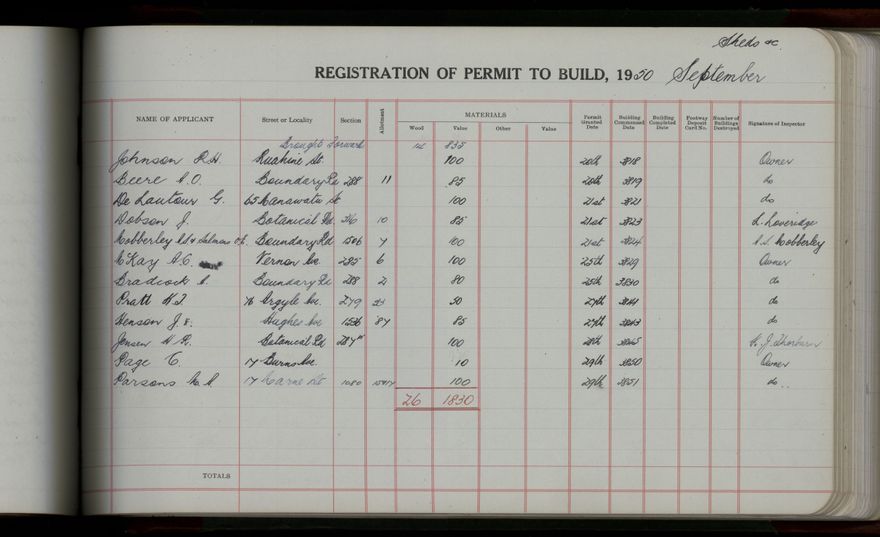 Sheds &c.
REGISTRATION OF PERMIT TO BUILD, 1950 September
NAME OF APPLICANT Street or Locality Section Allotment MATERIALS Wood Value Other Value Permit Granted Date Building Commenced Date Building Completed Date Footway Deposit Card No. Number of Buildings Destroyed Signature of Inspector
Brought Forward 14 835
Johnson R.H. Ruahine St. 100 20th 3818 Owner
Beere A.O. Boundary Rd 288 11 85 20th 3819 do
De Lautour G. 65 Manawatu St 100 21st 3821 do
Dobson J. Botanical Rd. 316 10 85 21st 3823 L. Loveridge
Cobberley & Salmons Boundary Rd 1506 7 100 21st 3824 Cobberley
McKay A.C. Vernon Ave. 295 6 100 25th 3829 Owner
Bradcock A. Boundary Rd 288 2 80 25th 3830 do
Pratt H.J. 16 Argyle Ave. 279 50 27th 3841 do
Henson J. E. Hughes Ave 1536 87 85 27th 3843 do
Jensen Botanical Rd 287 100 28th 3845 G. J. Thorburn
Page C. 17 Burns Ave. 10 29th 3850 Owner
Parsons 17 Carne St 1080 100 29th 3851 do
26 1830
TOTALS